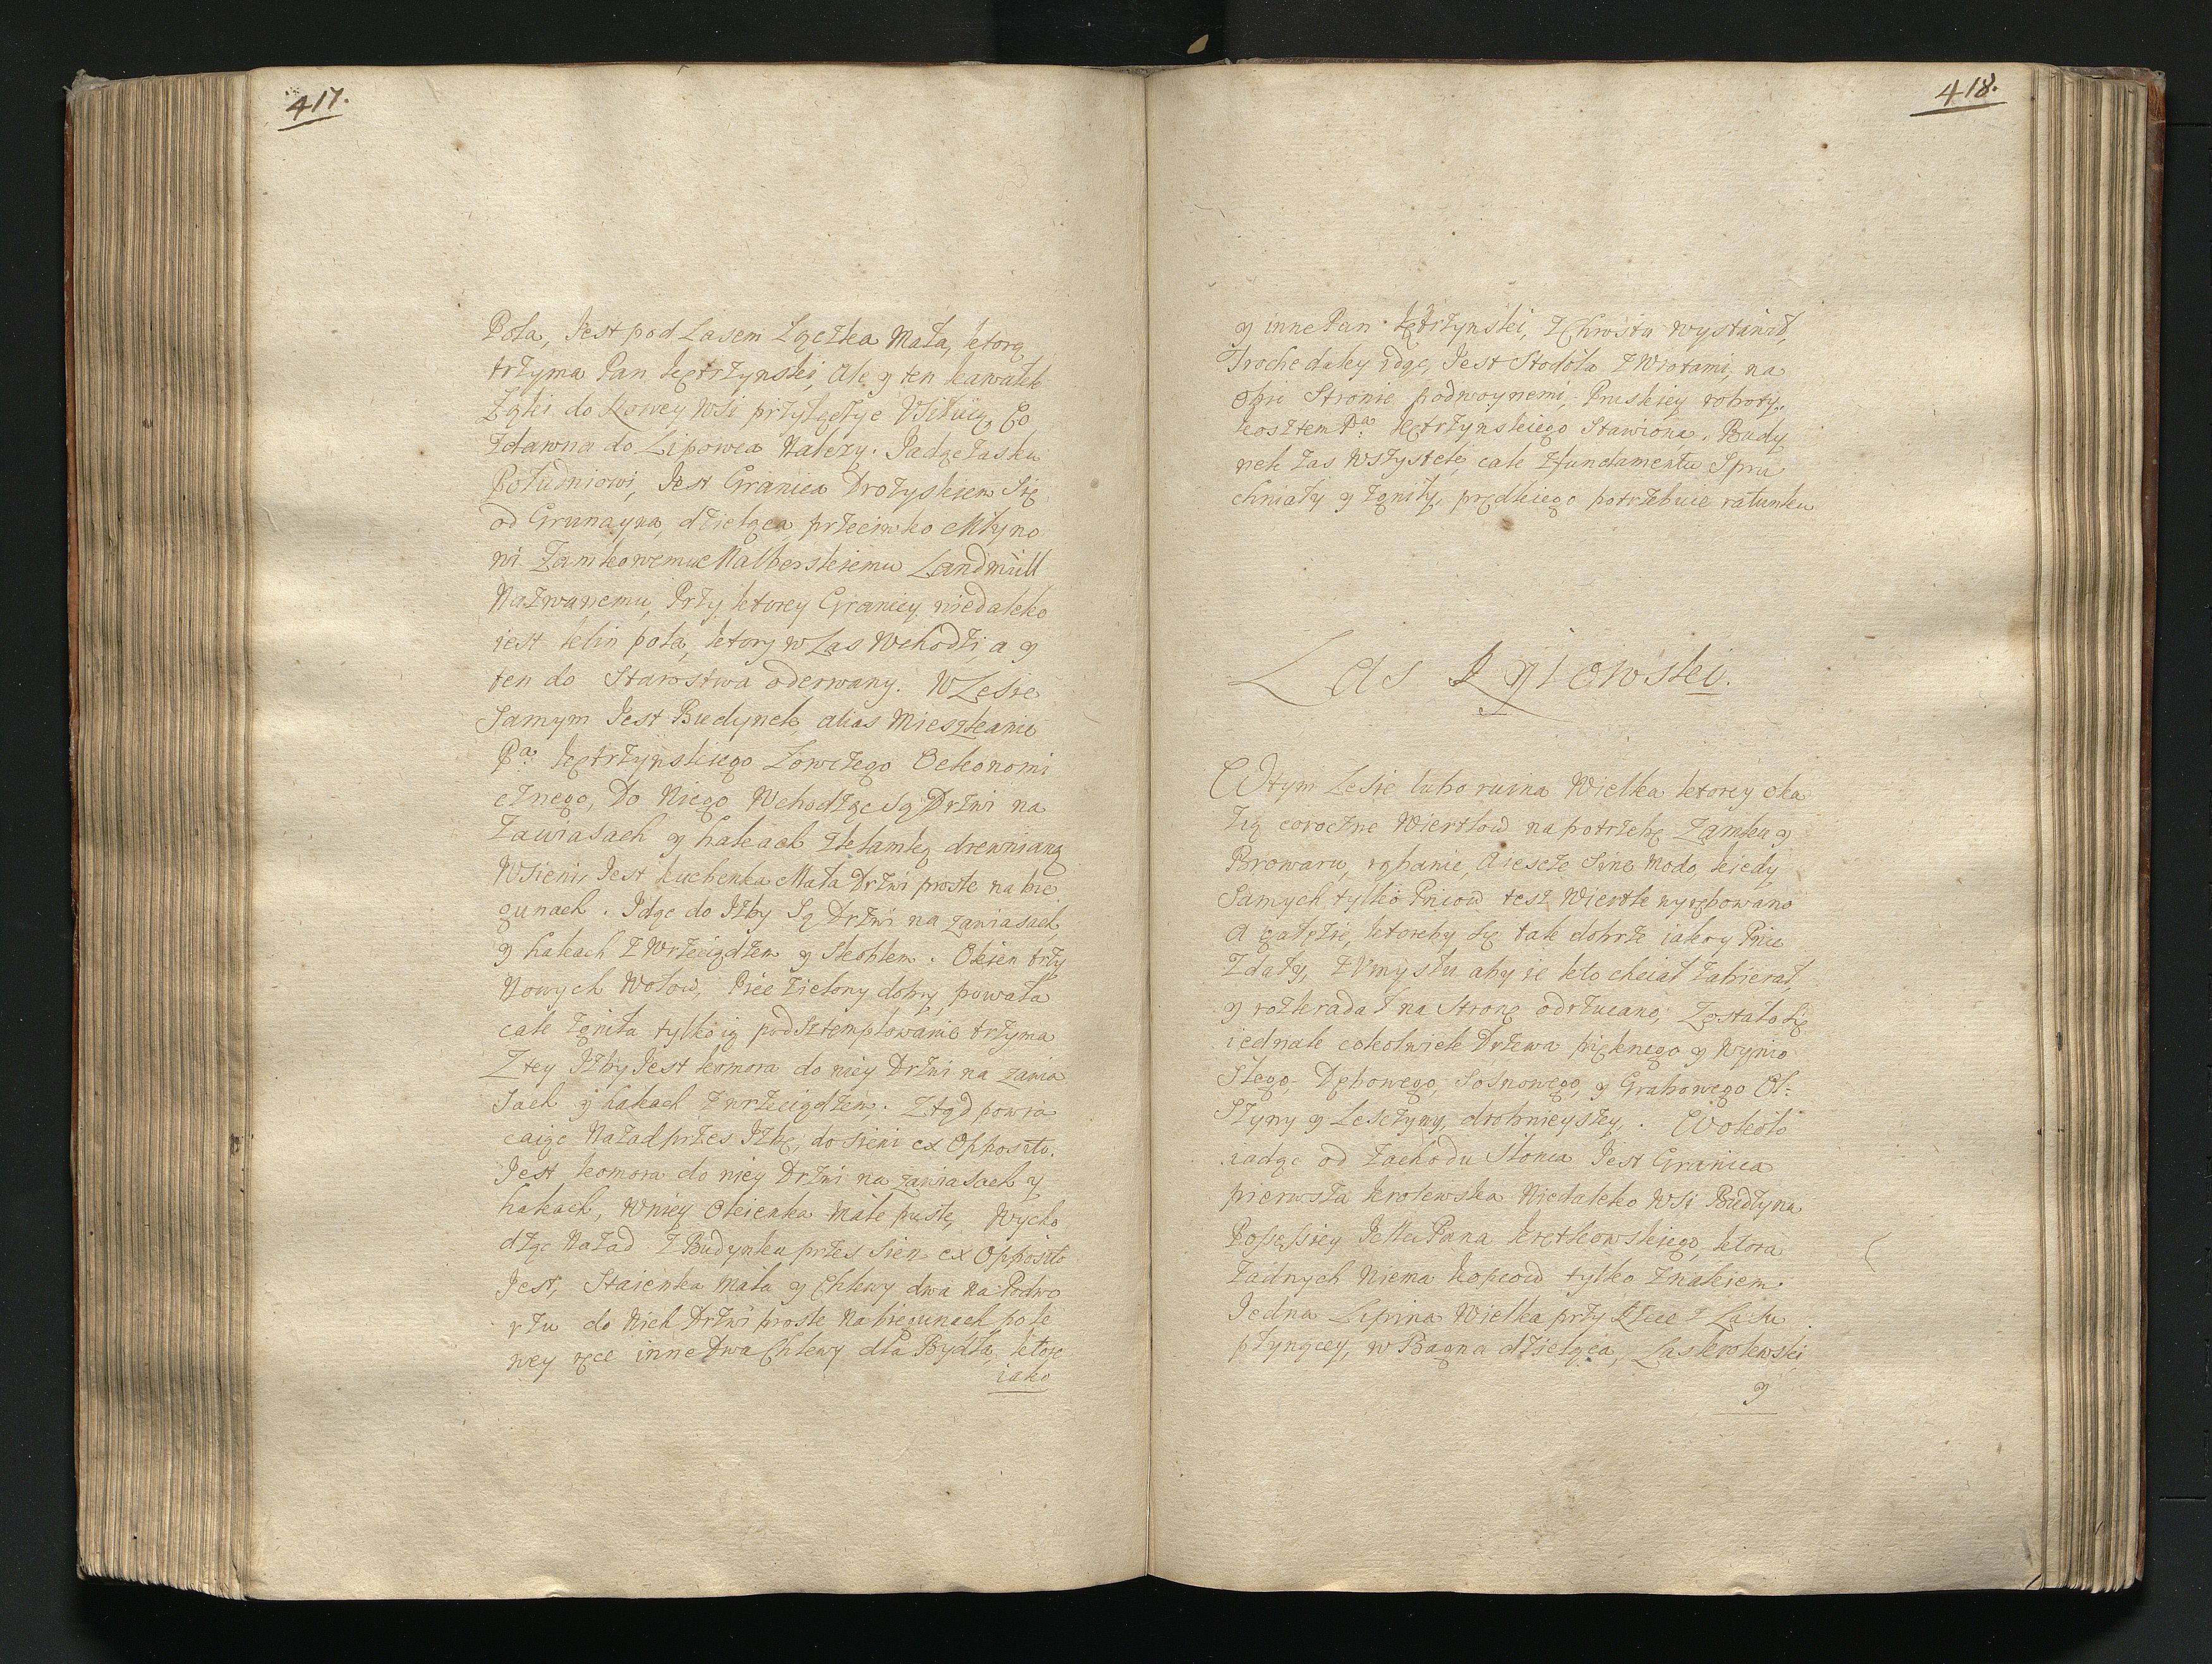 417.
Pola, Jest pod Lasem Łączka Mała, ktorą
trzyma Pan Kętrzynski, Ale y ten kawałek
Łąki do Nowey Wsi przyłączyc Usiłuią, Co
zdawna do Lipowca Należy. Jadąc zasku
Południowi, Jest Granica Drożyskiem Się
od Grunayna, dzieląca przeciwko Młyno
wi Zamkowemu Malborskiemu Landmüll
Nazwanemu, Przy ktorey Granicy niedaleko
iest klin pola, ktory w Las Wchodzi, a y
ten do Starostwa oderwany. W Lesie
Samym Jest Budynek, alias Mieszkanie
Pa Kętrzynskiego Łowczego Oekonomi
cznego, Do Niego Wchodząc Są Drzwi na
Zawiasach y hakach zklamką drewnianą
W Sieni, Jest kuchenka Mała Drzwi proste na bie
gunach. Jdąc do Jzby Są Drzwi na zawiasach
y hakach z Wrzeciądzem y Skoblem. Okien trzy
Nowych Wołow, Piec zielony dobry, powała
cale zgniła tylko ią podsztemplowanie trzyma
Z tey Jzby Jest komora do niey Drzwi na zawia
sach y hakach z wrzeciądzem. Ztąd powra
caiąc Nazad przes Jzbę, do Sieni ex Opposito.
Jest komora do niey Drzwi na zawiasach y
hakach, W niey Okienka Małe puste, Wycho
dząc Nazad z Budynku przes Sien ex Opposito
Jest, Staienka mała y Chlewy dwa na Podwo
rzu do Nich Drzwi proste Na biegunach po le
wey ręce inne Dwa Chlewy dla Bydła, ktore
iako
418.
y inne Pan Kętrzynski, z Chrostu wystawił,
Troche daley idąc, Jest Stodoła z Wrotami, na
obie Stronie podwoynemi, Pruskiey roboty,
kosztem Pa Kętrzynskiego Stawiona. Budy
nek zas Wszystek, cale z fundamentu Spru
chniały y zgniły, prędkiego potrzebuie ratunku
Las Ryiowski.
W tym Lesie lubo ruina Wielka ktorey oka
zią coroczne Wiertlow na potrzebę Zamku y
Browaru, rąbanie, A iescze Sine modo, kiedy
Samych tylko Pniow test Wiertle wyrębowano
A gałęzie, ktoreby się tak dobrze iako y Pnie
Zdały, z Umysłu aby ie kto chciał zabierał,
y rozkradał na Stronę odrzucano, Zostało się
iednak cokolwiek Drzewa pięknego y Wynio
słego, Dębowego, Sosnowego, y Grabowego Ol:
Szyny y Lesczyny, drobnieyszey. Wokoło
iadąc od Zachodu Słonca Jest Granica
pierwsza krolewska Niedaleko Wsi Budzyna
Possessiey JeMci Pana Krętkowskiego, ktora
żadnych Niema kopcow tylko znakiem
Jedna Lipina Wielka przy Rzece z Lasu
płynącey, w Bagna dzieląca, Las krolewski
y